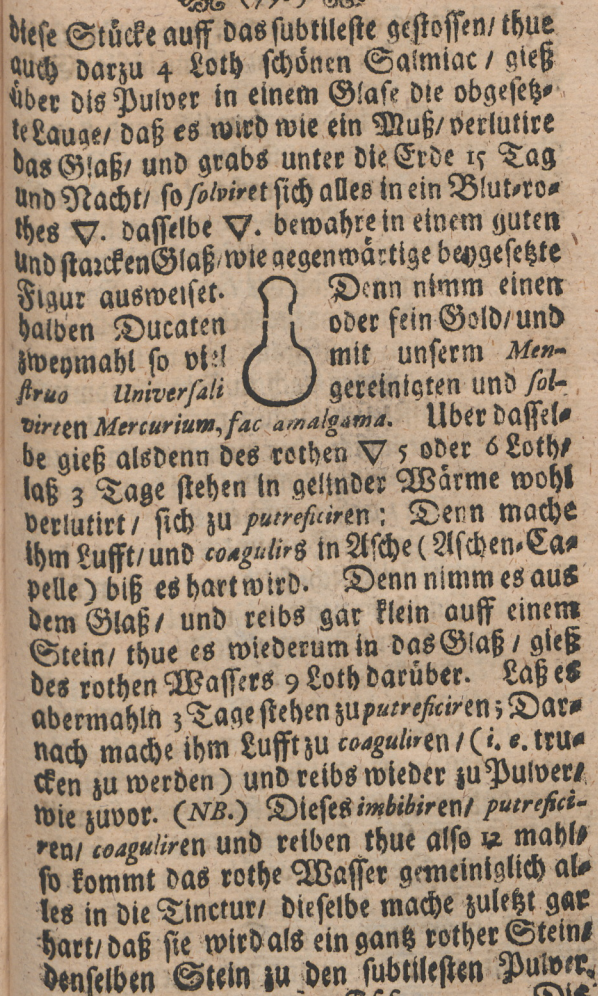 diese Stücke auff das subtileste gestossen/ thue
auch darzu 4 Loth schönen Salmiac / gieß
über dis Pulver in einem Glase die obgesetz-
te Lauge/ daß es wird wie ein Muß/ verlutire
das Glaß/ und grabs unter die Erde 15 Tag
und Nacht/ so solviret sich alles in ein Blut-ro-
thes 🜄. dasselbe 🜄. bewahre in einem guten
und starcken Glaß/ wie gegenwärtige beygesetzte
Figur ausweiset.
halben Ducaten
zweymahl so viel
struo Universali
Denn nimm einen
oder fein Gold/ und
mit unserm Men-
gereinigten und sol-
virten Mercurium, fac amalgama. Uber dassel-
be gieß alsdenn des rothen 🜄 5 oder 6 Loth/
laß 3 Tage stehen in gelinder Wärme wohl
verlutirt / sich zu putreficiren: Denn mache
ihm Lufft/ und coagulirs in Asche ( Aschen-Ca-
pelle ) biß es hart wird. Denn nimm es aus
dem Glaß / und reibs gar klein auff einem
Stein/ thue es wiederum in das Glaß / gieß
des rothen Wassers 9 Loth darüber. Laß es
abermahln 3 Tage stehen zu putreficiren; Dar-
nach mache ihm Lufft zu coaguliren / ( i. e. tru-
cken zu werden ) und reibs wieder zu Pulver/
wie zuvor. (NB.) Dieses imbibiren/ putrefici-
ren/ coaguliren und reiben thue also 12 mahl/
so kommt das rothe Wasser gemeiniglich al-
les in die Tinctur/ dieselbe mache zuletzt gar
hart/ daß sie wird als ein gantz rother Stein/
denselben Stein zu den subtilesten Pulver.